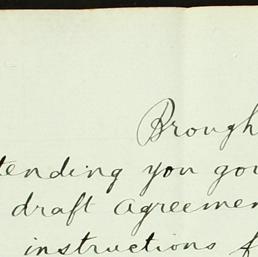 Brough
tending you gou
draft agreemen
instructions f